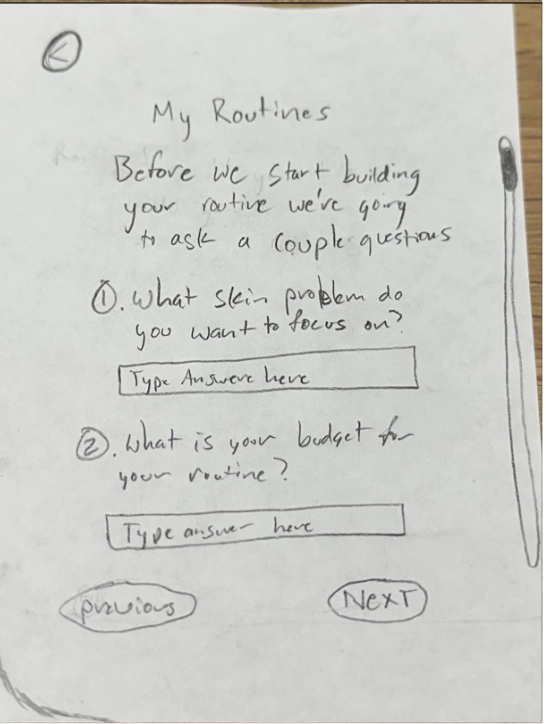 <
My Routines
Before we start building
your routine we're going
to ask a couple questions
①. What skin problem do
you want to focus on?
Type Answere here
②. What is your budget for
your routine?
Type answer here
previous
NexT